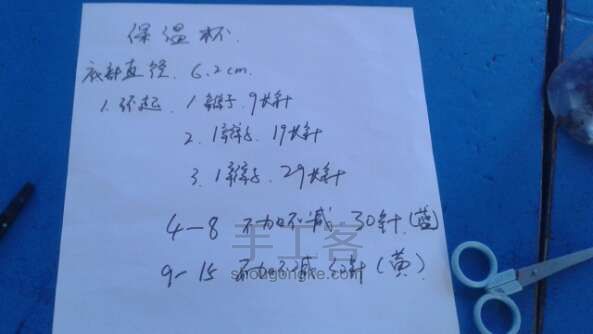 保温杯.
底部直径. 6.2cm.
1. 环起. 1辫子. 9长针
2. 1辫子. 19长针
3. 1辫子. 29长针
4-8 不加不减 30针(蓝)
手工客
shougongke.com
9-15 不加不减 针(黄).